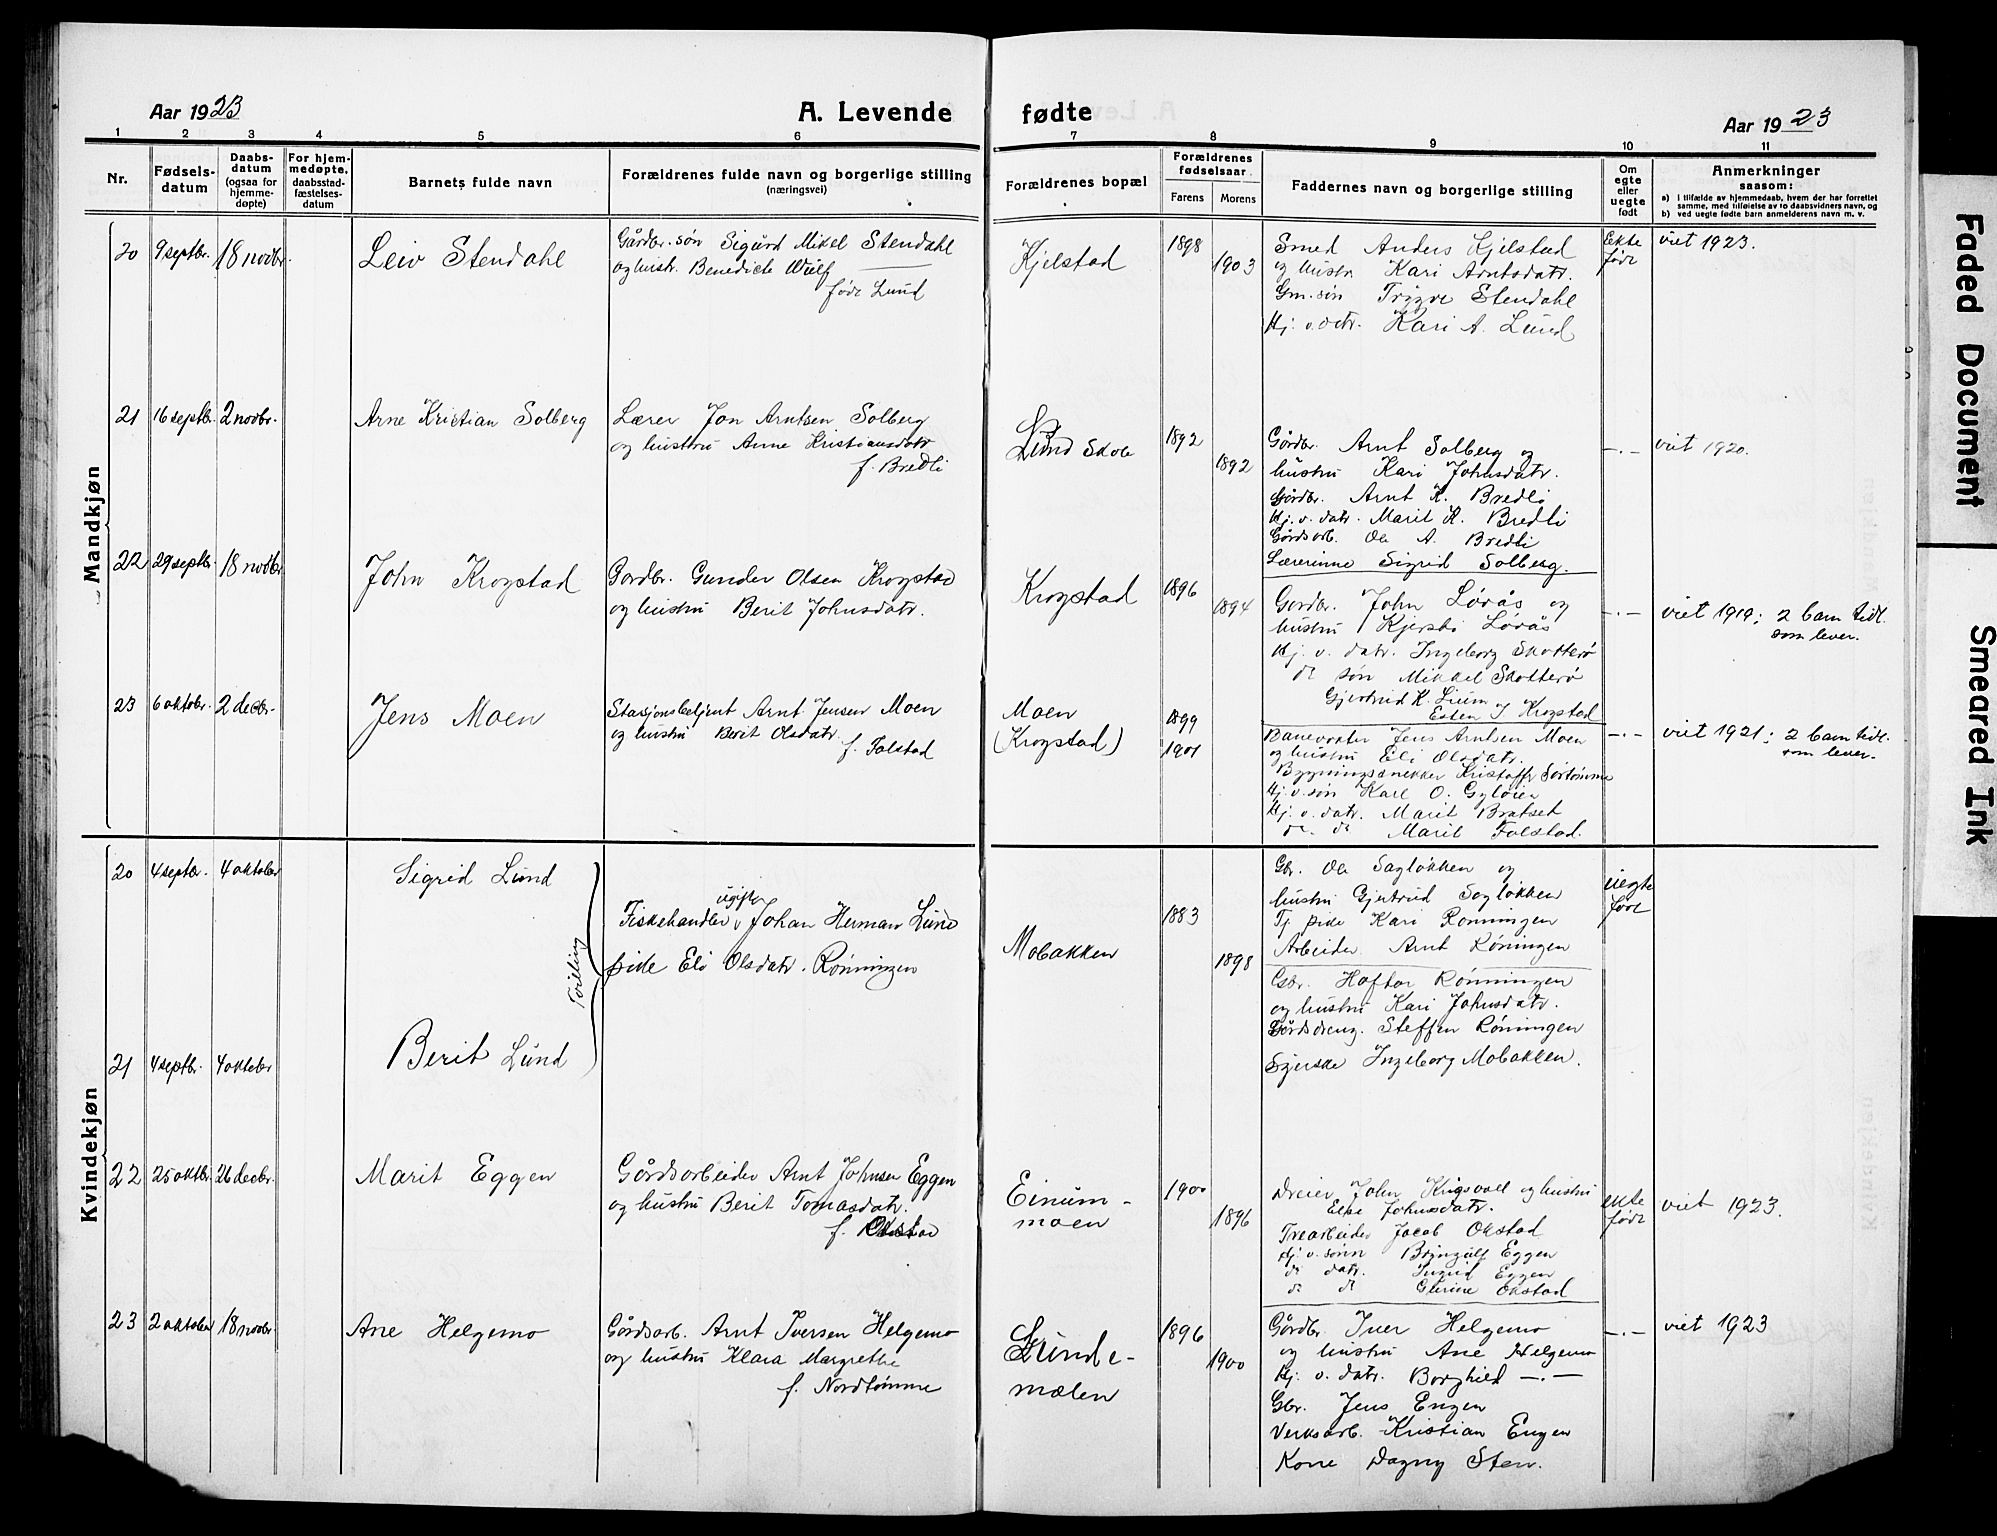 Aar 1923
A. Levende fødte
Aar 1923
1 2 3 4 5 6 7 8 9 10 11
Nr.
Fødselsdatum
Daabsdatum (ogsaa for hjemmedøpte)
For hjemmedøpte, daabsstadfæstelsesdatum
Barnets fulde navn
Forældrenes fulde navn og borgerlige stilling (næringsvei)
Forældrenes bopæl
Forældrenes fødselsaar
Farens Morens
Faddernes navn og borgerlige stilling
Om egte eller uegte født
Anmerkninger saasom:
a) i tilfælde av hjemmedaab, hvem der har forrettet samme, med tilføielse av to daabsvidners navn, og
b) ved uegte fødte barn anmelderens navn m. v.
Mandkjøn
20 9 septbr. 18 novbr. Leiv Stendahl
Gårdbr. søn Sigurd Mikel Stendahl
og hustr. Benedicte Wulf
født Lund
Kjelstad
1898
1903
Smed Anders Kjelstad
og hustru Kari Arntsdatr.
Gm. søn Trygve Stendahl
Hj. v. datr. Kari A. Lund
Ekte født
viet 1923.
21 16 septbr. 2 novbr. Arne Kristian Solberg
Lærer Jon Arntsen Solberg
og hustru Anne Kristiansdatr
f. Bredli
Lund Skole
1892
1892
Gårdbr. Arnt Solberg og
hustru Kari Johnsdatr.
Gårdbr. Arnt K. Bredli
Hj. v. datr. Marit K. Bredli
Gårdsarb. Ole A. Bredli
Lærerinne Sigrid Solberg.
-.-
viet 1920.
22 29 septbr. 18 novbr. John Krogstad
Gordbr. Gunder Olsen Krogstad
og hustru Berit Johnsdatr.
Krogstad
1896
1894
Gordbr. John Løvås og
hustru Kjersti Løvås
Hj. v. datr. Ingeborg Skotterø
do søn Mikkel Skotterø
Gjertrud K. Lium
Esten J. Krogstad
-.-
viet 1919; 2 barn tidl.
som lever.
23 6 oktobr. 2 decbr. Jens Moen
Stasjonsbetjent Arnt Jensen Moen
og hustru Berit Olsdatr.
f. Folstad
Moen
(Krogstad)
1899
1901
Banevokter Jens Arntsen Moen
og hustru Eli Olsdatr.
Bygningssnekker Kristoffr Sørtømme
Hj. v. søn Karl O. Gyløien
Hj. v. datr. Marit Bratset
do. do Marit Folstad.
-.-
viet 1921; 2 barn tidl.
som lever.
Kvindekjøn
20 4 septbr. 4 oktober Sigrid Lund
Tvilling
ugift
Fiskehandler Johan Herman Lund
pike Eli Olsdatr. Rønningen
Mobakken
1883
1898
Gbr. Ole Sagløkken og
hustru Gjertrud Sagløkken
Tj. pike Kari Rønningen
Arbeider Arnt Røningen
uegte født
21 4 septbr. 4 oktobr Berit Lund
Gbr. Haftor Rønningen
og hustru Kari Johnsdatr.
Gårdsdreng. Steffen Røningen
Syerske Ingeborg Mobakken.
22 25 oktbr. 26 decbr. Marit Eggen
Gårdsarbeider Arnt Johnsen Eggen
og hustru Berit Tomasdatr.
f. Okstad
Einum-
moen
1900
1896
Dreier John Krigsvoll og hustru
Elie Johnsdatr.
Trearbeider Jacob Okstad
Hj. v. sønn Brynjulf Eggen
do datr. Ingrid Eggen
do do Gurine Okstad
ekte født
viet 1923.
23 2 oktober 18 novbr. Ane Helgemo
Gårdsarb. Arnt Iversen Helgemo
og hustru Klara Margrethe
f. Nordtømme
Lunde-
mælen
1896
1900
Gårdbr Iver Helgemo
og hustru Ane Helgemo
Hj. v. datr. Borghild -.-
Gbr. Jens Engen
Verksarb. Kristian Engen
Kone Dagny Sten.
-.-
viet 1923
Faded Document
Smeared Ink